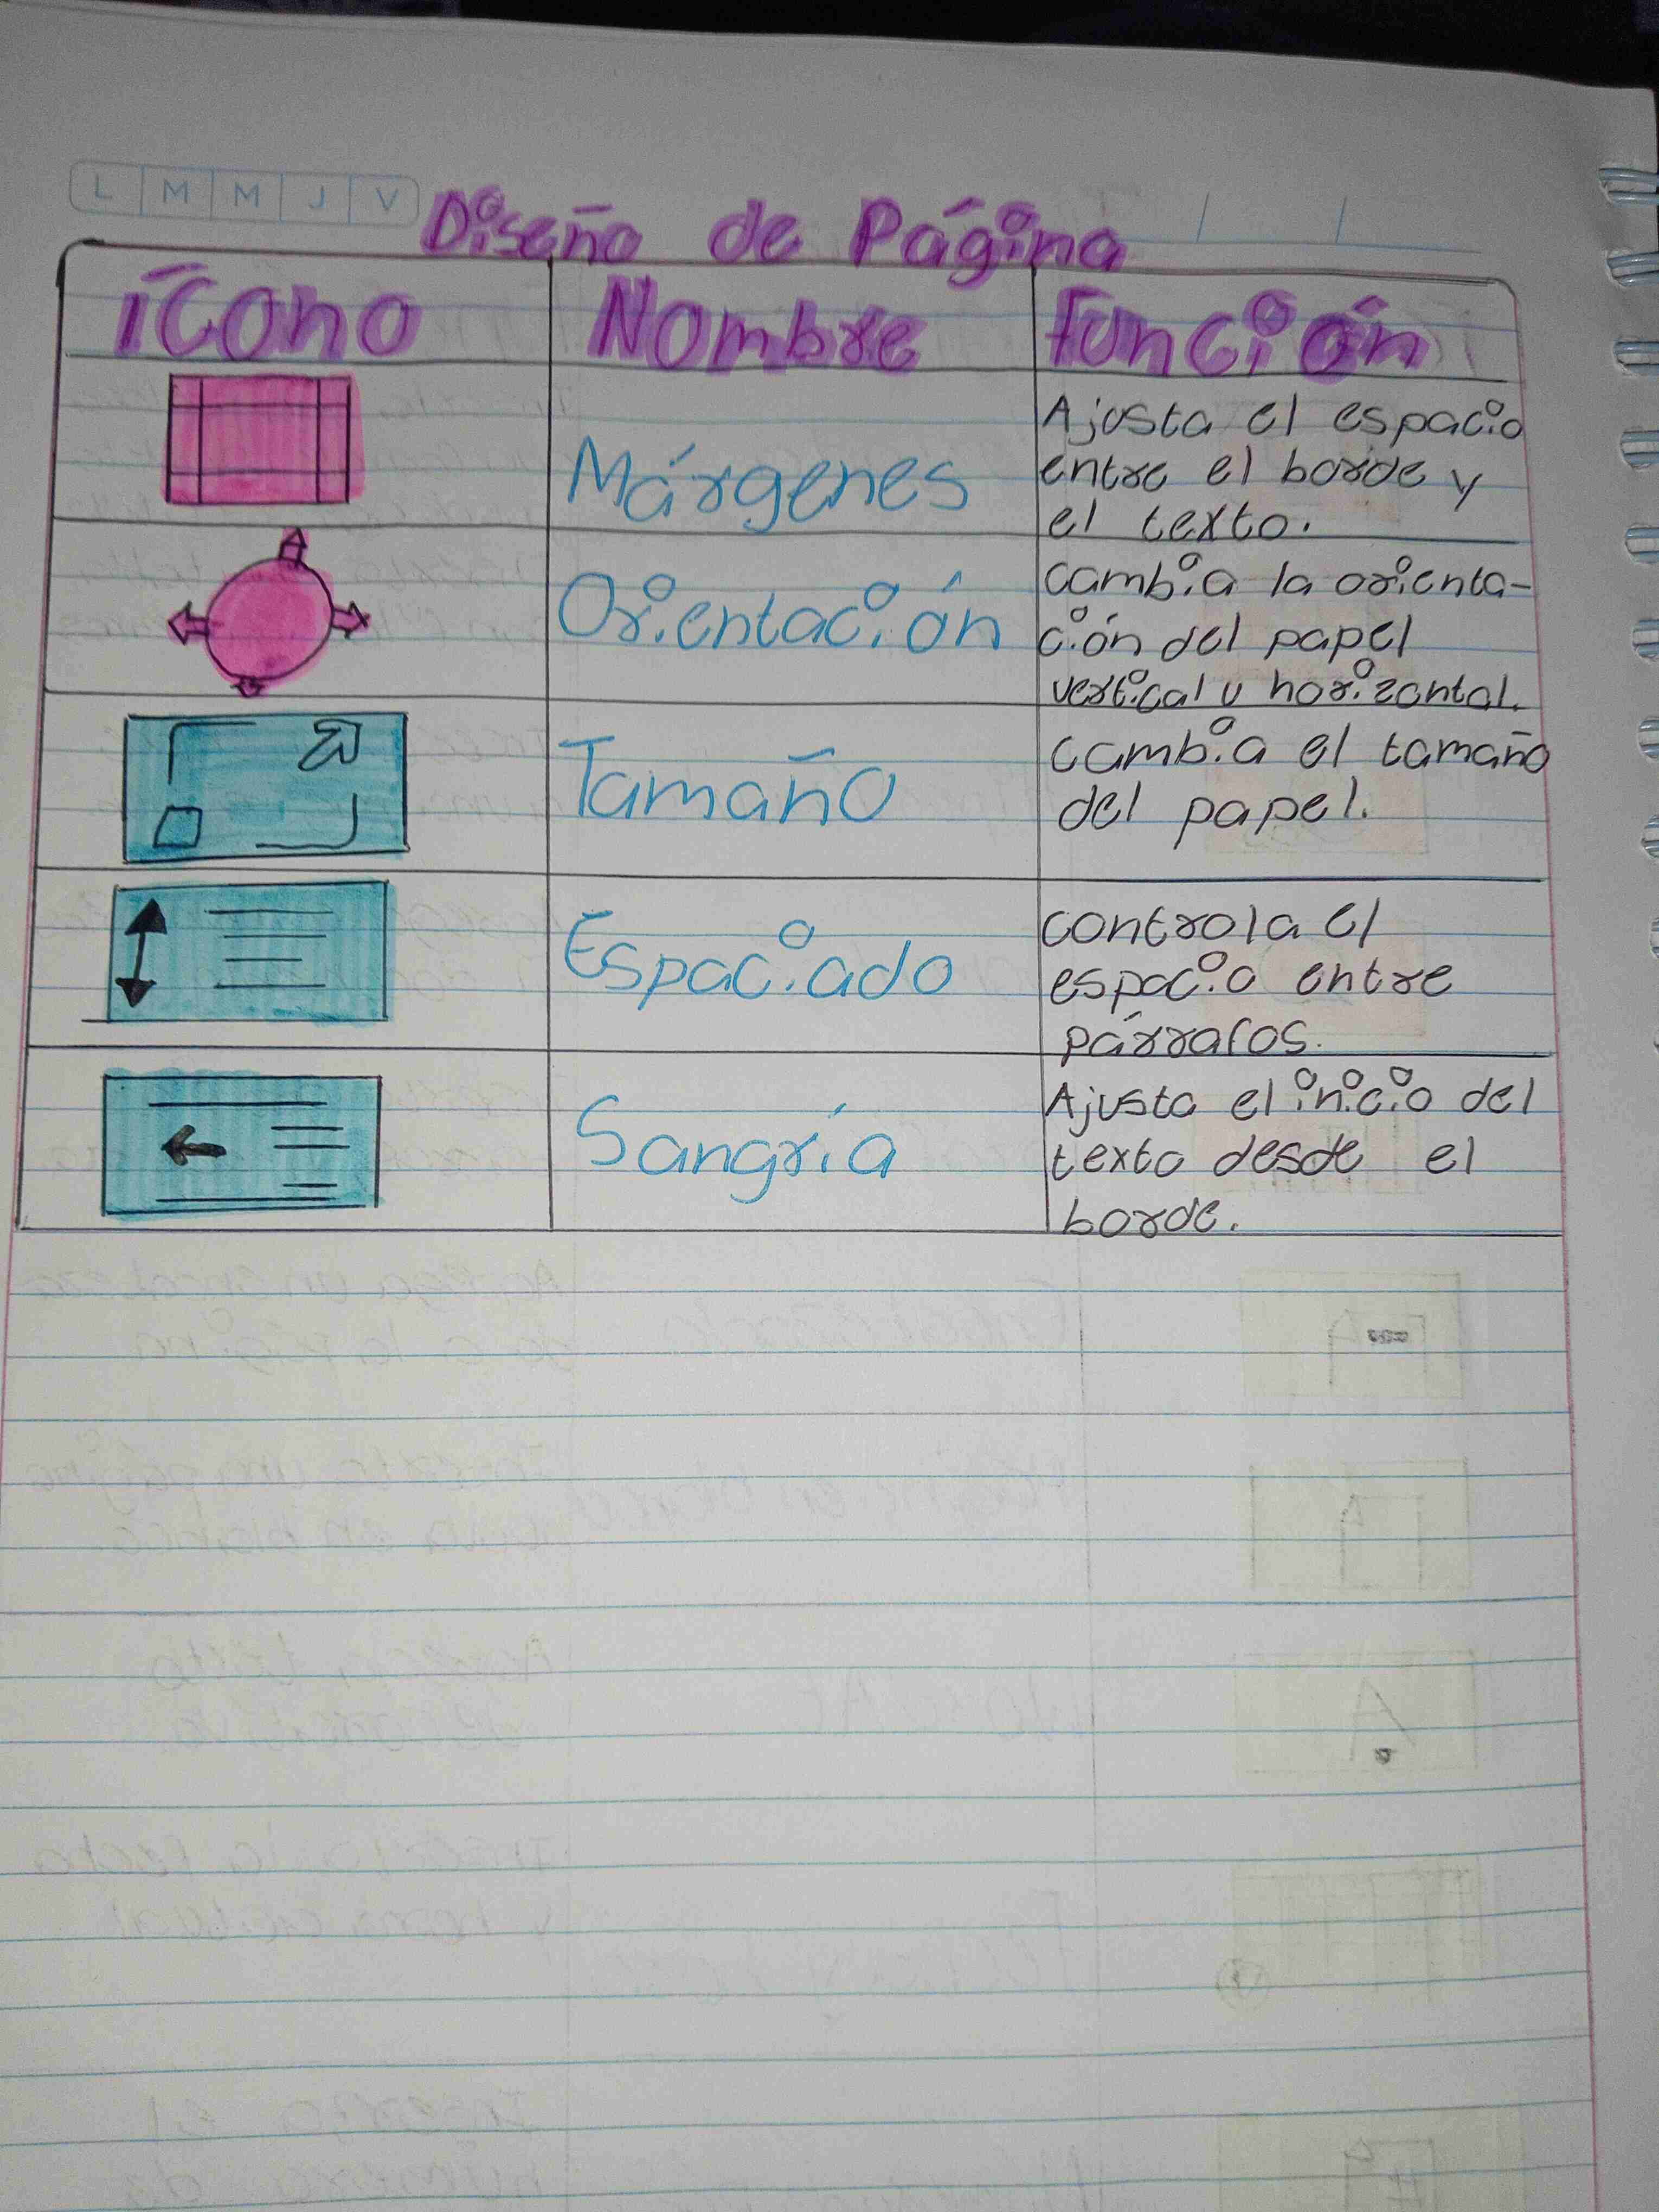 L M M J V
Diseño de Página
Ícono Nombre Función
Márgenes
Ajusta el espacio
entre el borde y
el texto.
Orientación
cambia la orienta-
ción del papel
vertical u horizontal.
Tamaño
cambia el tamaño
del papel.
Espaciado
controla el
espacio entre
párrafos.
Sangría
Ajusta el inicio del
texto desde el
borde.